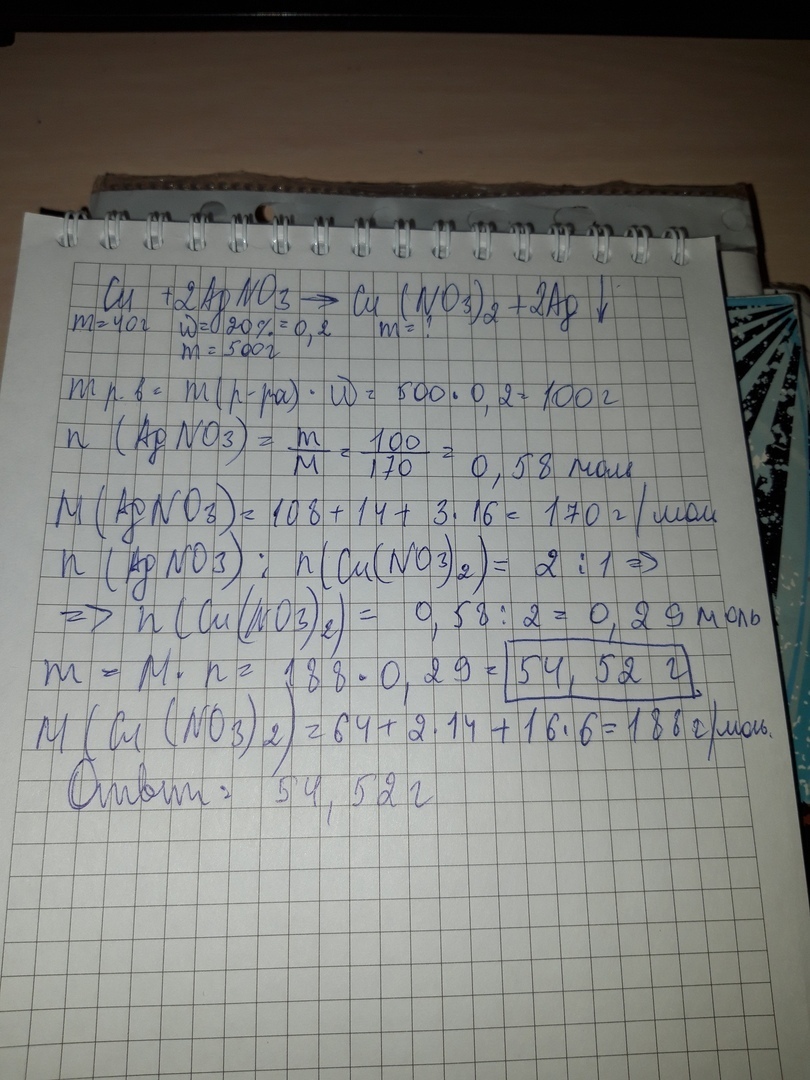 Cu + 2AgNO3 → Cu(NO3)2 + 2Ag↓
m=40г ω=20%=0,2 m=?
m=500г
m р.в = m(р-ра)·ω = 500·0,2=100г
n(AgNO3) = m/M = 100/170 = 0,58 моль
M(AgNO3)=108+14+3·16=170г/мол
n(AgNO3) : n(Cu(NO3)2) = 2:1 =>
=> n(Cu(NO3)2) = 0,58:2=0,29моль
m = M·n = 188·0,29=54,52 г
M(Cu(NO3)2)=64+2·14+16·6=188г/моль.
Ответ: 54,52г